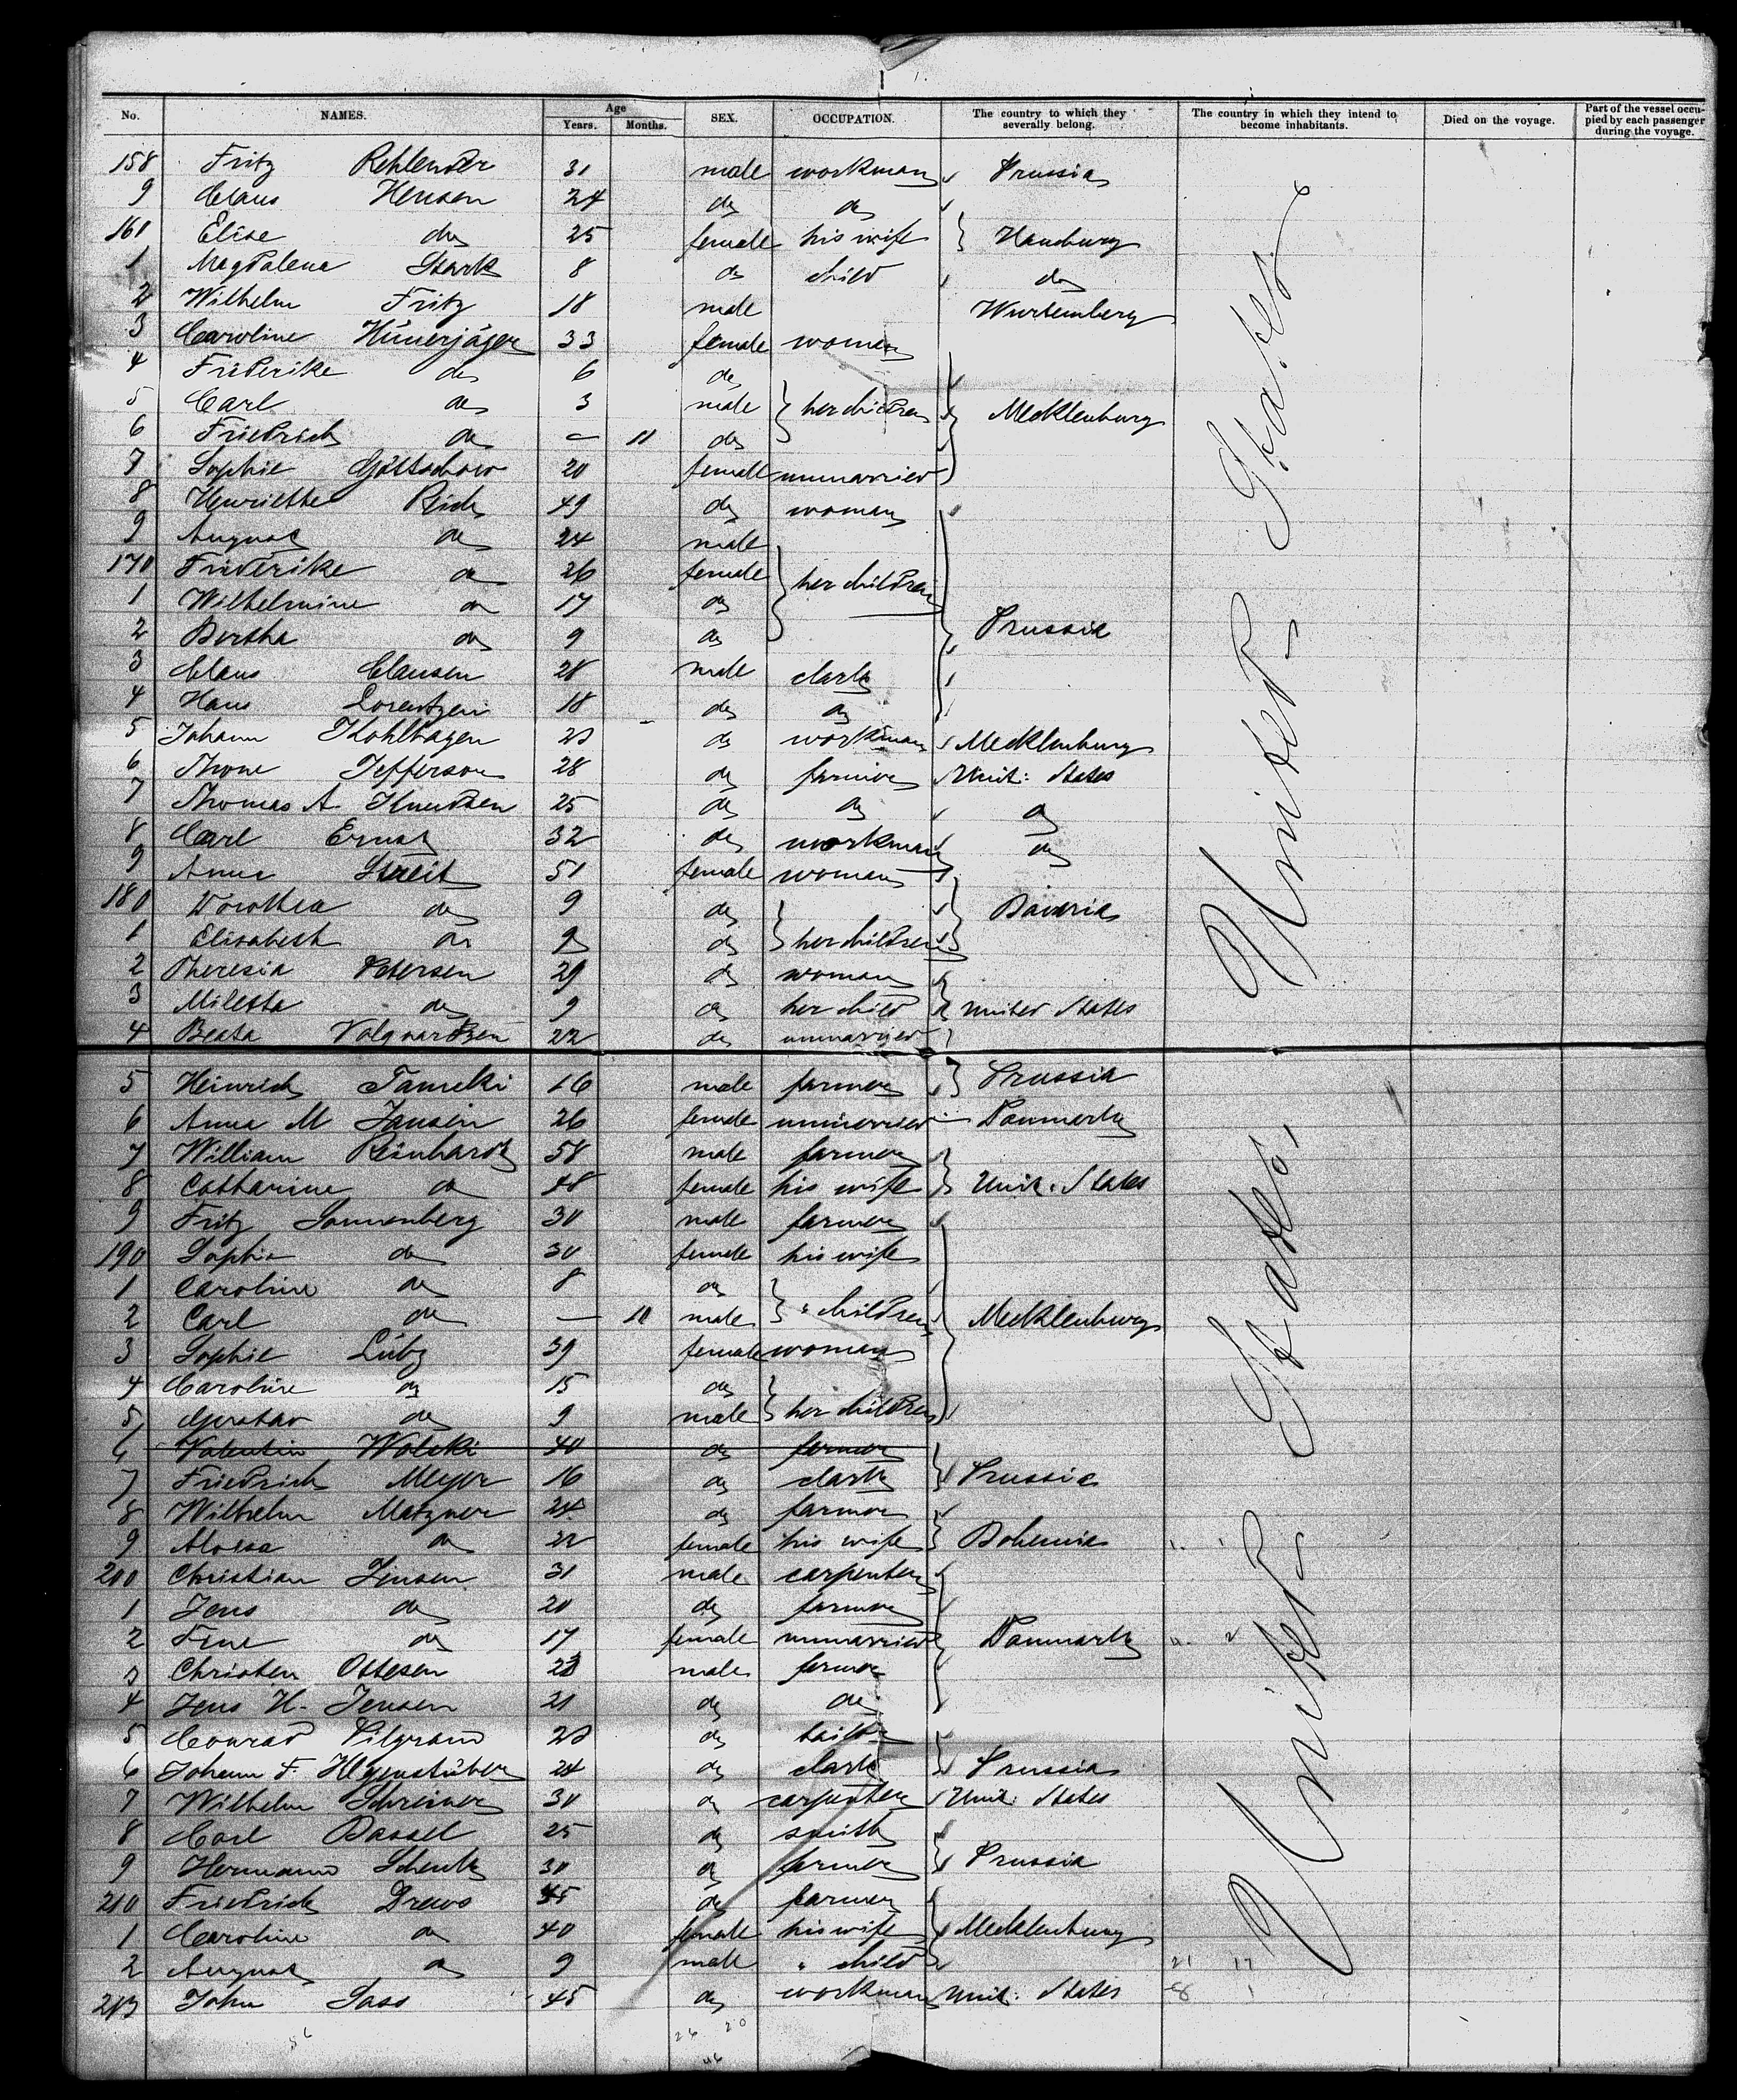 No. NAMES. Age Years. Months. SEX. OCCUPATION. The country to which they severally belong. The country in which they intend to become inhabitants. Died on the voyage. Part of the vessel occupied by each passenger during the voyage.
158 Fritz Rehlender 31 male workman Prussia
9 Claus Hensen 24 do do
160 Elise do 25 female his wife Hamburg
1 Magdalena Stark 8 do child do
2 Wilhelm Fritz 18 male Wurtemberg
3 Caroline Hünerjäger 33 female woman
4 Friderike do 6 do
5 Carl do 3 male her children Mecklenburg
6 Friedrich do – 11 do
7 Sophie Göttschow 20 female unmarried
8 Henriette Reich 49 do woman
9 August do 24 male
170 Friderike do 26 female her children
1 Wilhelmine do 17 do
2 Bertha do 9 do Prussia
3 Claus Clausen 28 male clark
4 Hans Lorentzen 18 do do
5 Johann Kohlhagen 23 do workman Mecklenburg
6 Thone Jefferson 28 do farmer Unit: States
7 Thomas A Knudsen 25 do do do
8 Carl Ernst 32 do workman do
9 Anna Streit 51 female woman
180 Dorothea do 9 do Bavaria
1 Elisabeth do 9 do her children
2 Theresia Petersen 29 do woman
3 Miletta do 9 do her child United States
4 Beata Volquardsen 22 do unmarried
United States
5 Heinrich Tamcki 16 male farmer Prussia
6 Anna M Jansen 26 female unmarried Danmark
7 William Reinhardt 58 male farmer
8 Catharine do 48 female his wife Unit: States
9 Fritz Sonnenberg 30 male farmer
190 Sophie do 30 female his wife
1 Caroline do 8 do
2 Carl do — 11 male " children Mecklenburg
3 Sophie Lübz 39 female woman
4 Caroline do 15 do
5 Gustav do 9 male her children
6 Valentin Wolski 40 do farmer
7 Friedrich Meyer 16 do clark Prussia
8 Wilhelm Matzner 24 do farmer
9 Aloisa do 22 female his wife Bohemia
200 Christian Jensen 31 male carpenter
1 Jens do 20 do farmer
2 Tine do 17 female unmarried Danmark
3 Christen Ottesen 23 male farmer
4 Jens H. Jensen 21 do do
5 Conrad Pilgram 23 do
6 Johann F. 24 do clark Prussia
7 Wilhelm Schreiner 30 do carpenter Unit: States
8 Carl Bassel 25 do smith
9 Hermann Schenk 30 do farmer Prussia
210 Friedrich Drews 45 do farmer
1 Caroline do 40 female his wife Mecklenburg
2 August do 9 male " child 21 17
213 John Sass 45 do workman Unit: States
United States
26 20
46